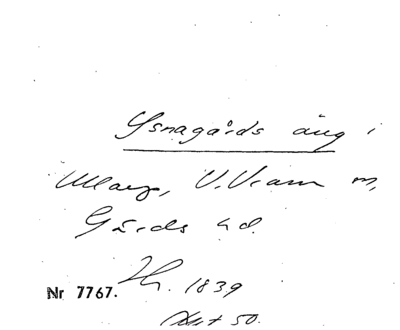 Ysnagårds äng i
Ullarp, V. Vram m,
Gärds hd.
Nr 7767. Th. 1839
Akt 50.